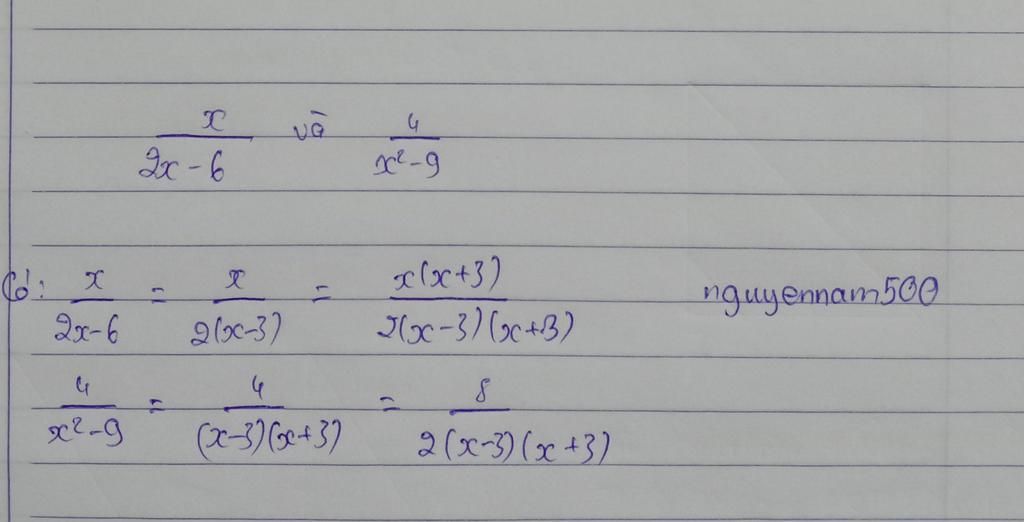 x/(2x-6) và 4/(x²-9)
Có: x/(2x-6) = x/(2(x-3)) = x(x+3)/(2(x-3)(x+3)) nguyennam500
4/(x²-9) = 4/((x-3)(x+3)) = 8/(2(x-3)(x+3))